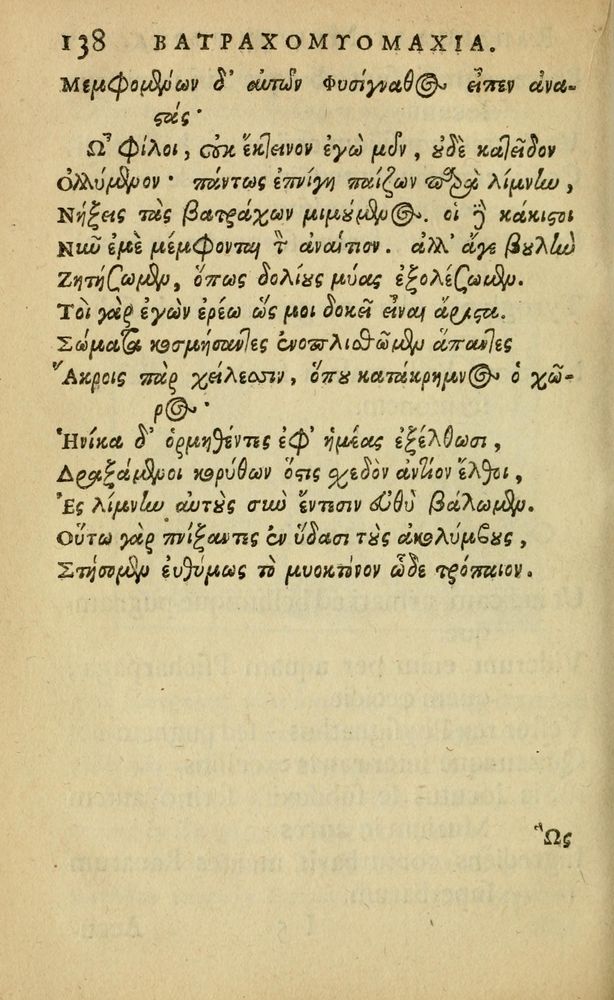 138 ΒΑΤΡΑΧΟΜΥΟΜΑΧΙΑ.
Μεμφομθύων δ' αὐτῶν Φυσίγναθος εἶπεν ἀνα-
στάς·
Ω῏ φίλοι, οὐκ ἔκτεινον ἐγὼ μῦν, οὐδὲ κατεῖδον
Ολλύμενον· πάντως ἐπνίγη παίζων παρὰ λίμνην,
Νήξεις τὰς βατράχων μιμούμενος. οἱ δὲ κάκιστοι
Νιῶ ἐμὲ μέμφονται τὸν ἀναίτιον. ἀλλ' ἄγε βουλὴν
Ζητήσωμεν, ὅπως δολίους μύας ἐξολέσωμεν.
Τοὶ γὰρ ἐγὼν ἐρέω ὥς μοι δοκεῖ εἶναι ἄριστα.
Σώματα κοσμήσαντες ἐνοπλισθῶμεν ἅπαντες
Ἄκροις πὰρ χείλεσσιν, ὅπου κατάκρημνος ὁ χῶ-
ρος·
Ἡνίκα δ' ὁρμηθέντες ἐφ' ἡμέας ἐξέλθωσι,
Δραξάμενοι κορύθων ὅστις σχεδὸν ἀντίον ἔλθοι,
Ἐς λίμνην αὐτοὺς σὺν ἔντεσιν εὐθὺ βάλωμεν.
Οὕτω γὰρ πνίξαντες ἐν ὕδασι τοὺς ἀκολύμβους,
Στήσομεν εὐθύμως τὸ μυοκτόνον ὧδε τρόπαιον.
Ὣς